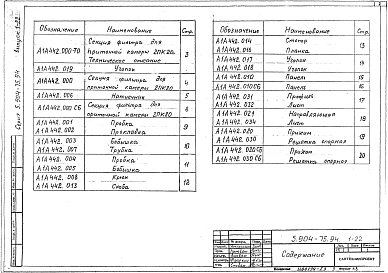 Серия 5.904-75.94 Выпуск 1-22
Обозначение Наименование Стр.
А1А442.000-70 Секция фильтра для приточной камеры 2ПК20. Техническое описание 3
А1А442.019 Уголок 4
А1А442.000 Секция фильтра для приточной камеры 2ПК20
А1А442.006 5
А1А442.000 СБ Секция фильтра для приточной камеры 2ПК20 6
А1А442.001 Пробка 9
А1А442.002 Прокладка
А1А442.003 Бобышка 10
А1А442.007 Трубка
А1А442.004 Пробка 11
А1А442.005 Бобышка
А1А442.008 Крюк 12
А1А442.013 Скоба
Обозначение Наименование Стр.
А1А442.014 13
А1А442.016 Планка
А1А442.017 Уголок 14
А1А442.018 Уголок
А1А442.010 Панель 15
А1А442.010СБ Панель 16
А1А442.031 17
А1А442.032 Лист
А1А442.021 Направляющая 18
А1А442.034 Лист
А1А442.020 Прижим 19
А1А442.030 Решетка опорная
А1А442.020СБ Прижим 20
А1А442.030 СБ Решетка опорная
5.904-75.94 1-22
Содержание
САНТЕХНИИПРОЕКТ